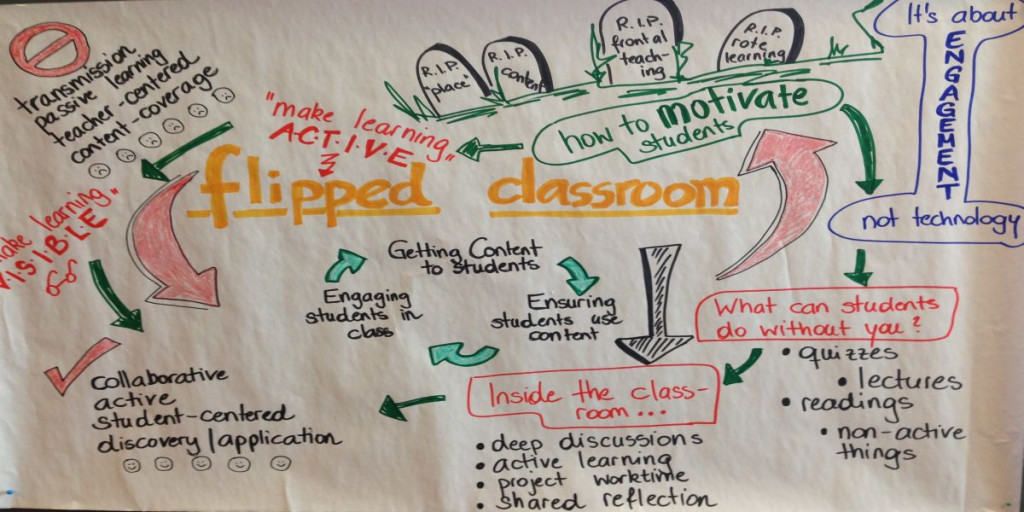 transmission
passive learning
teacher-centered
content-coverage
"make learning
V.I.S.I.B.L.E"
R.I.P.
"place"
R.I.P.
content
R.I.P.
frontal
teach-
ing
R.I.P.
rote
learning
It's about
ENGAGEMENT
not technology
"make learning
A.C.T.I.V.E"
how to motivate
students
flipped classroom
Getting Content
to students
Ensuring
students use
content
Engaging
students in
class
What can students
do without you?
• quizzes
• lectures
• readings
• non-active
things
Inside the class-
room...
• deep discussions
• active learning
• project worktime
• shared reflection
collaborative
active
student-centered
discovery/application